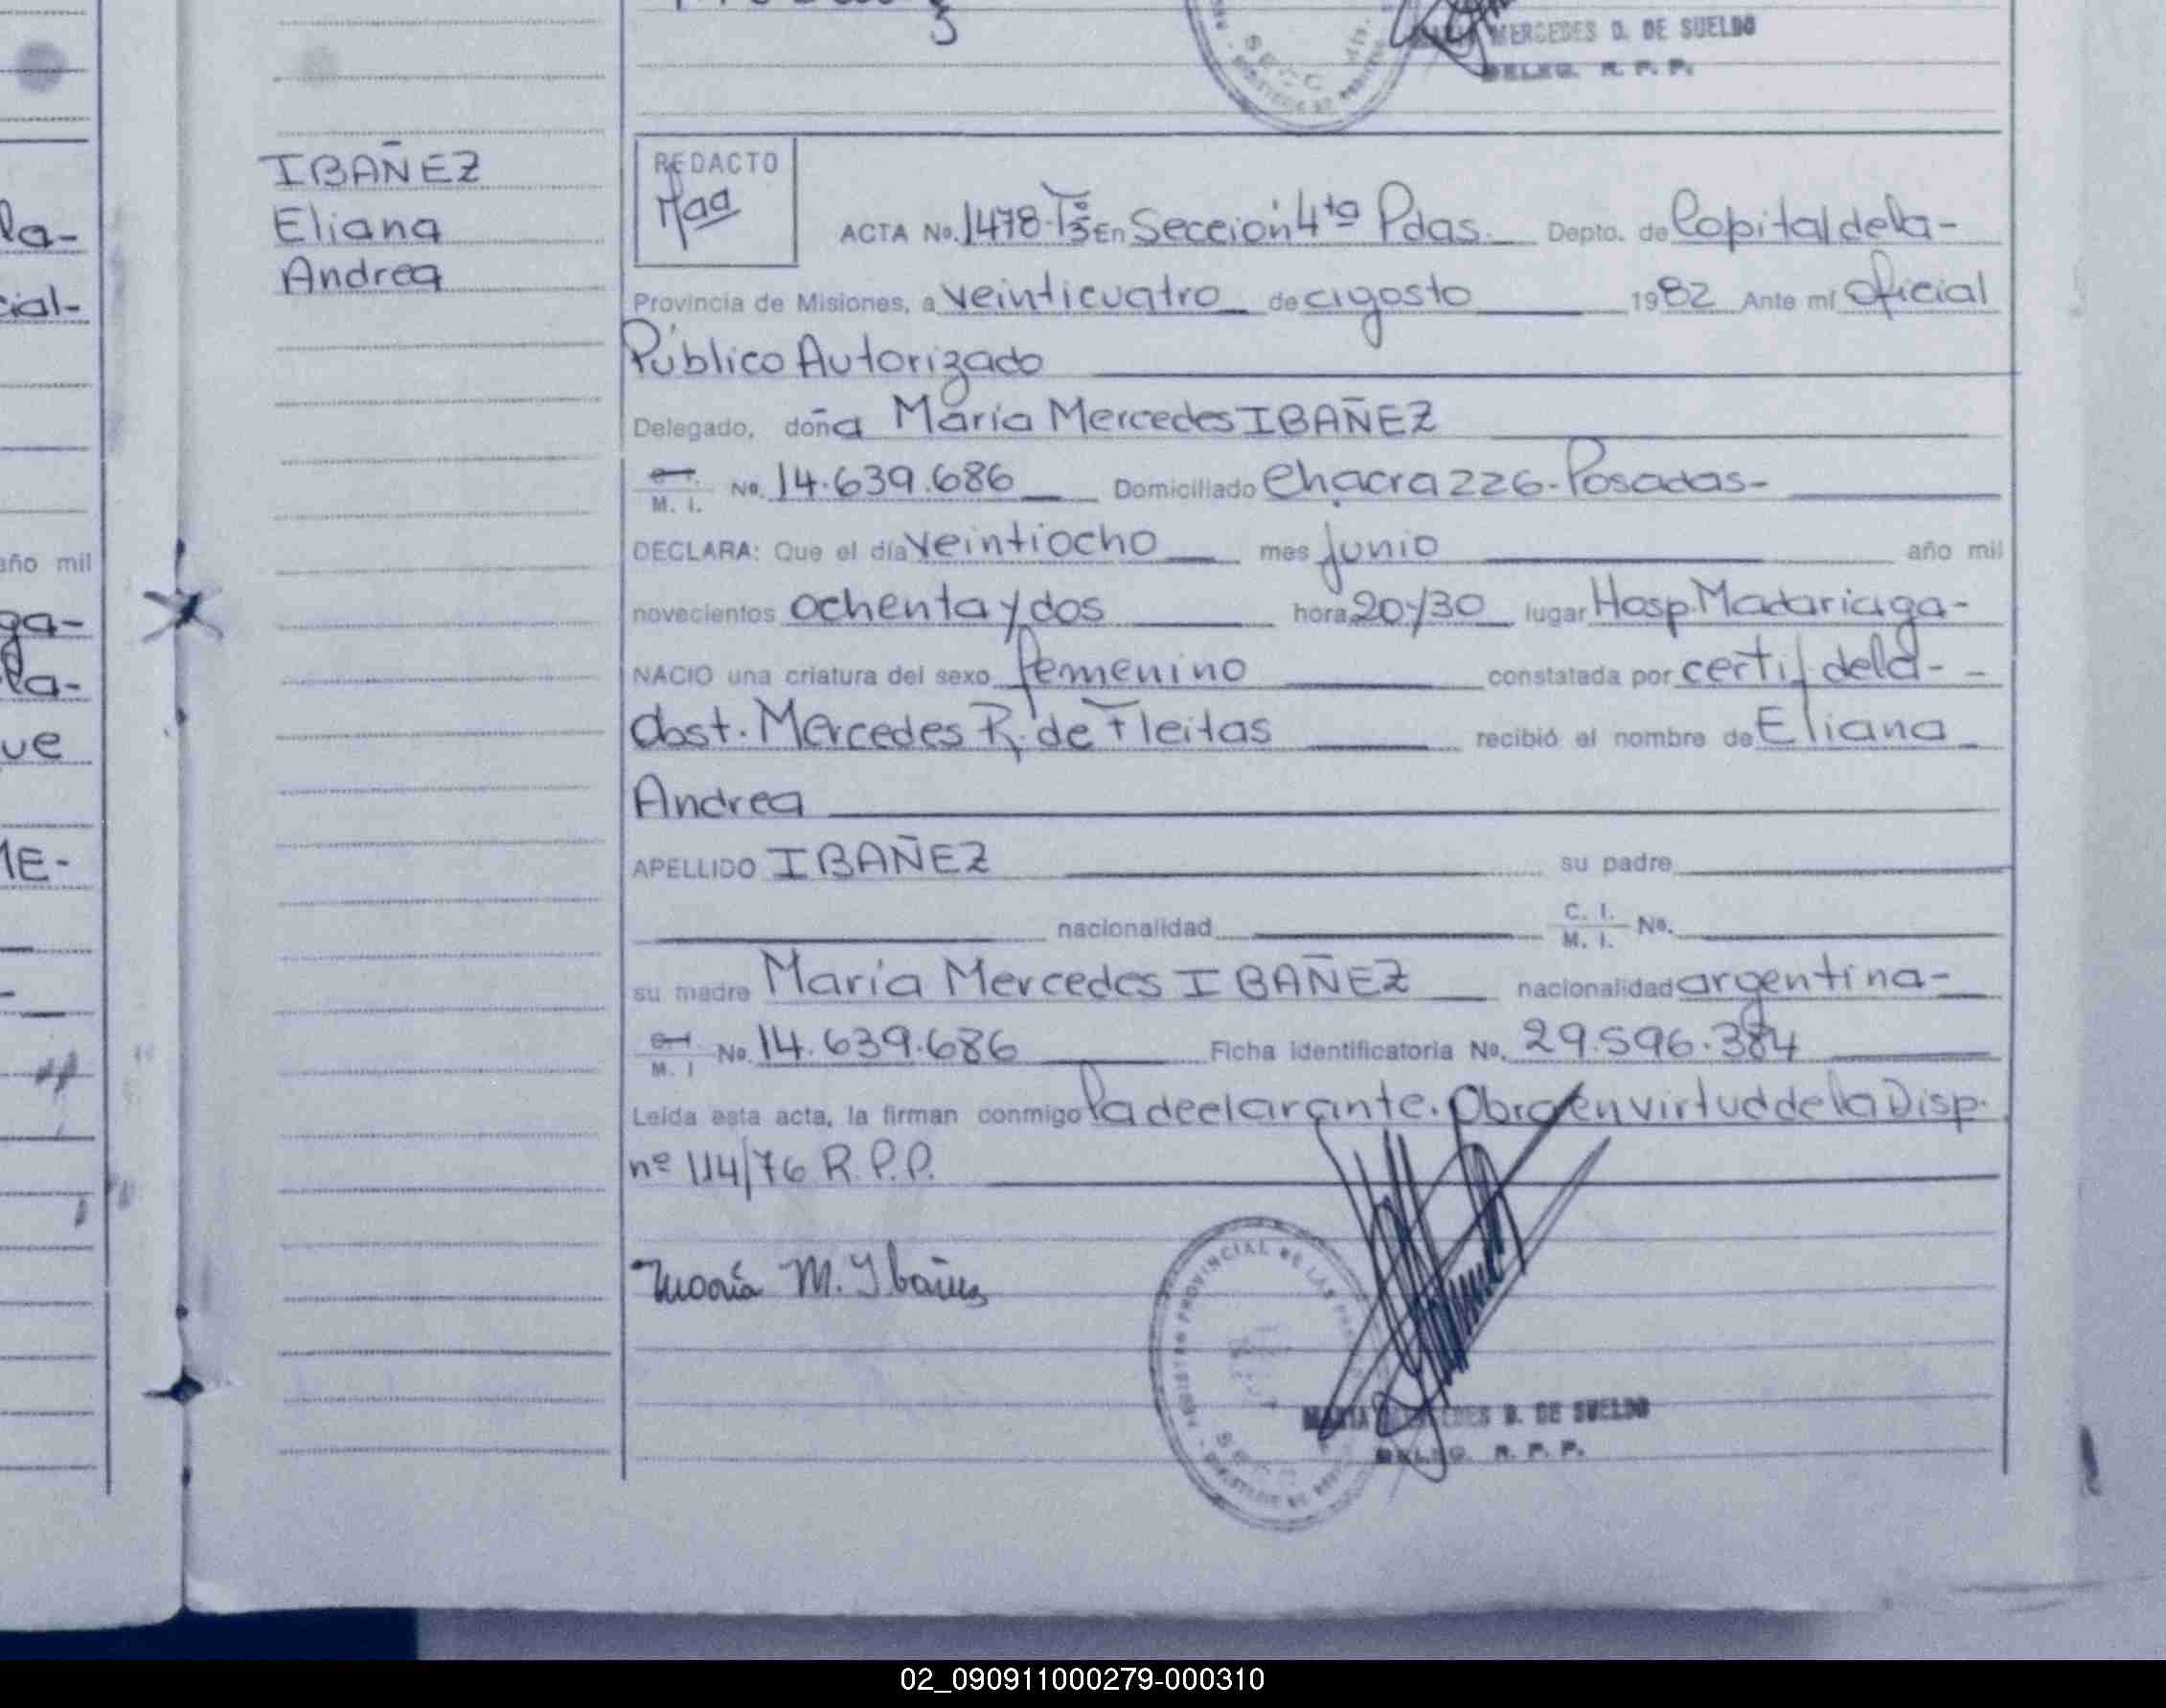 MERCEDES D. DE SUELDO
DELEG. R. P. P.
IBAÑEZ
Eliana
Andrea
REDACTO
ACTA No. 1478-Tº3 En Sección 4ta Pdas. Depto. de Capital de la-
Provincia de Misiones, a veinticuatro de agosto 1982 Ante mí Oficial
Público Autorizado
Delegado, doña María Mercedes IBAÑEZ
M. I. No. 14.639.686 Domiciliado Chacra 226-Posadas-
DECLARA: Que el día veintiocho mes junio año mil
novecientos ochenta y dos hora 20y30 lugar Hosp. Madariaga-
NACIO una criatura del sexo femenino constatada por certif de la-
obst. Mercedes R. de Fleitas recibió el nombre de Eliana
Andrea
APELLIDO IBAÑEZ su padre
nacionalidad C. I. M. I. No.
su madre María Mercedes IBAÑEZ nacionalidad argentina-
M. I No. 14.639.686 Ficha identificatoria No. 29.596.384
Leída esta acta, la firman conmigo la declarante. Obra en virtud de la Disp.
nº 114/76 R.P.P.
María M. Ibañez
REGISTRO PROVINCIAL DE LAS
MARIA MERCEDES D. DE SUELDO
DELEG. R. P. P.
la-
cial-
año mil
ga-
la-
ue
ME-
02_090911000279-000310